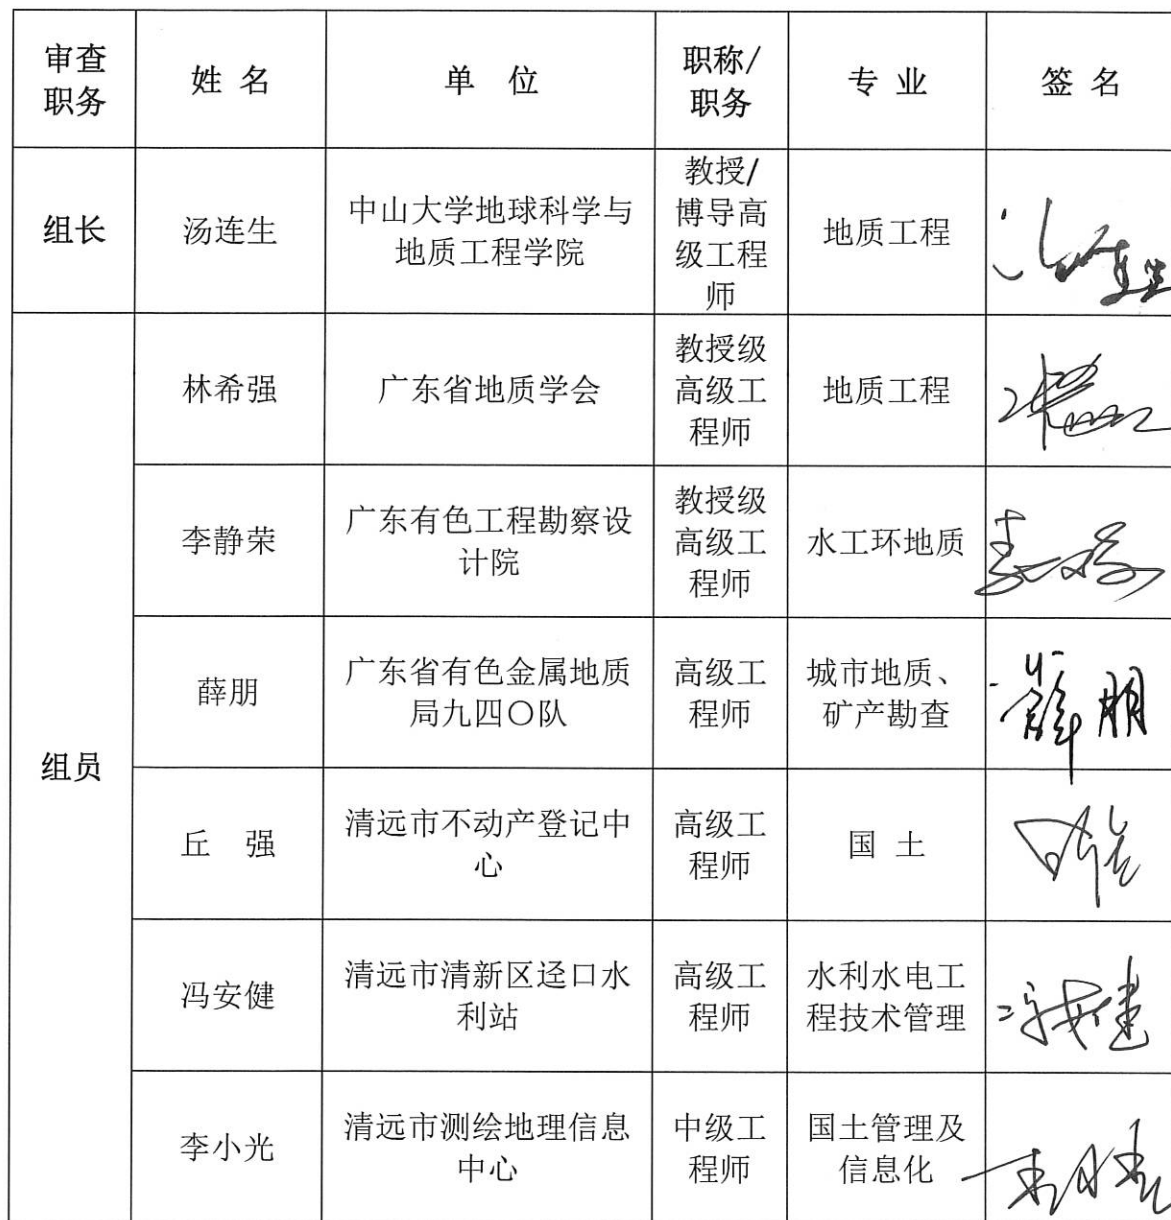 审查
职务
姓 名
单 位
职称/
职务
专 业
签 名
组长
汤连生
中山大学地球科学与
地质工程学院
教授/
博导高
级工程
师
地质工程
组员
林希强
广东省地质学会
教授级
高级工
程师
地质工程
李静荣
广东有色工程勘察设
计院
教授级
高级工
程师
水工环地质
薛朋
广东省有色金属地质
局九四〇队
高级工
程师
城市地质、
矿产勘查
薛朋
丘 强
清远市不动产登记中
心
高级工
程师
国 土
冯安健
清远市清新区迳口水
利站
高级工
程师
水利水电工
程技术管理
冯安健
李小光
清远市测绘地理信息
中心
中级工
程师
国土管理及
信息化